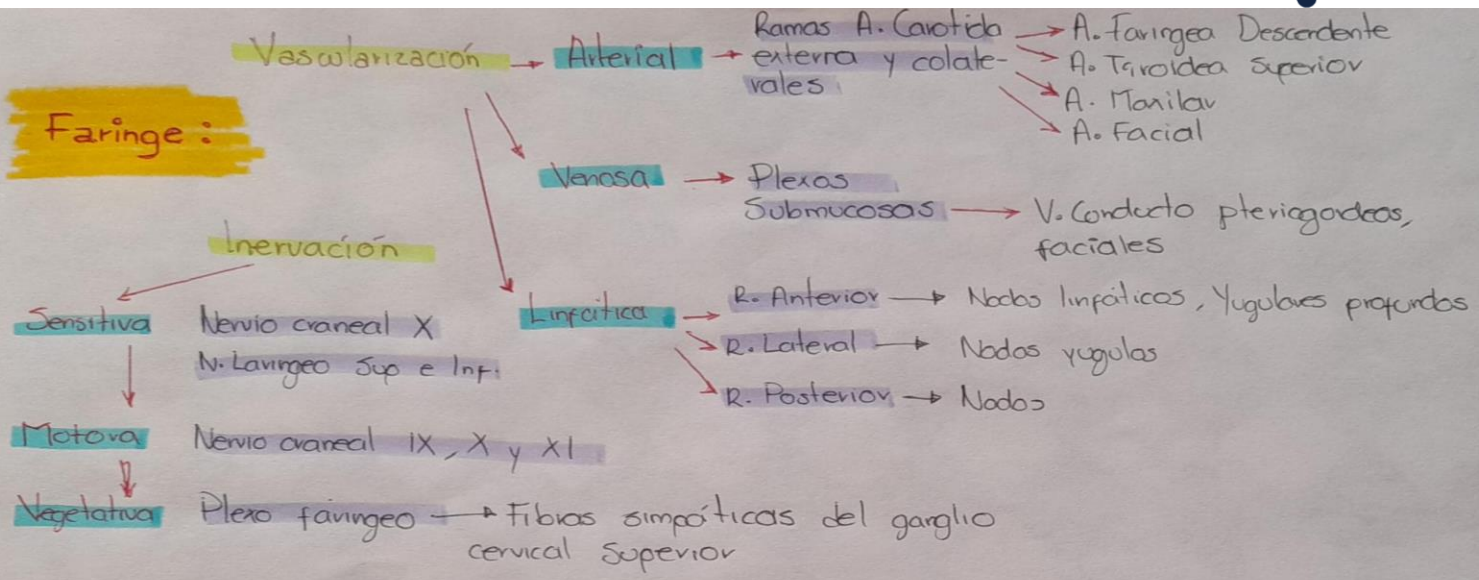 Faringe:
Vascularización → Arterial → Ramas A. Carotida
externa y colate-
rales
→ A. Faringea Descendente
→ A. Tiroidea superior
→ A. Maxilar
→ A. Facial
Venosa → Plexos
Submucosos → V. Conducto
faciales
Linfática → R. Anterior → Nodos linfáticos, Yugulares profundos
→ R. Lateral → Nodos yugulas
→ R. Posterior → Nodos
Inervación
Sensitiva Nervio craneal X
N. Laringeo Sup e Inf.
Motora Nervio craneal IX, X y XI
Vegetativa Plexo faringeo → Fibras simpáticas del ganglio
cervical Superior